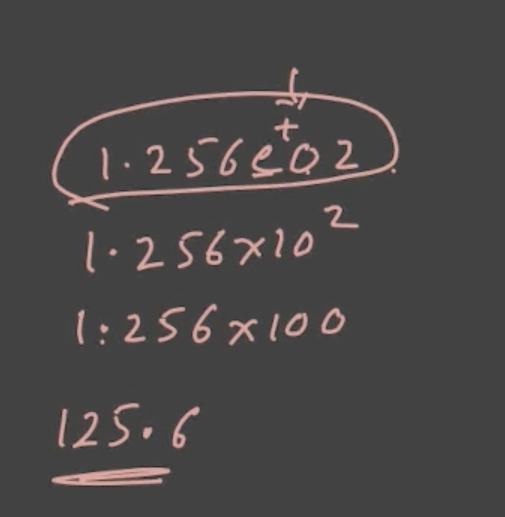 1.256e+02
1.256x10²
1.256x100
125.6